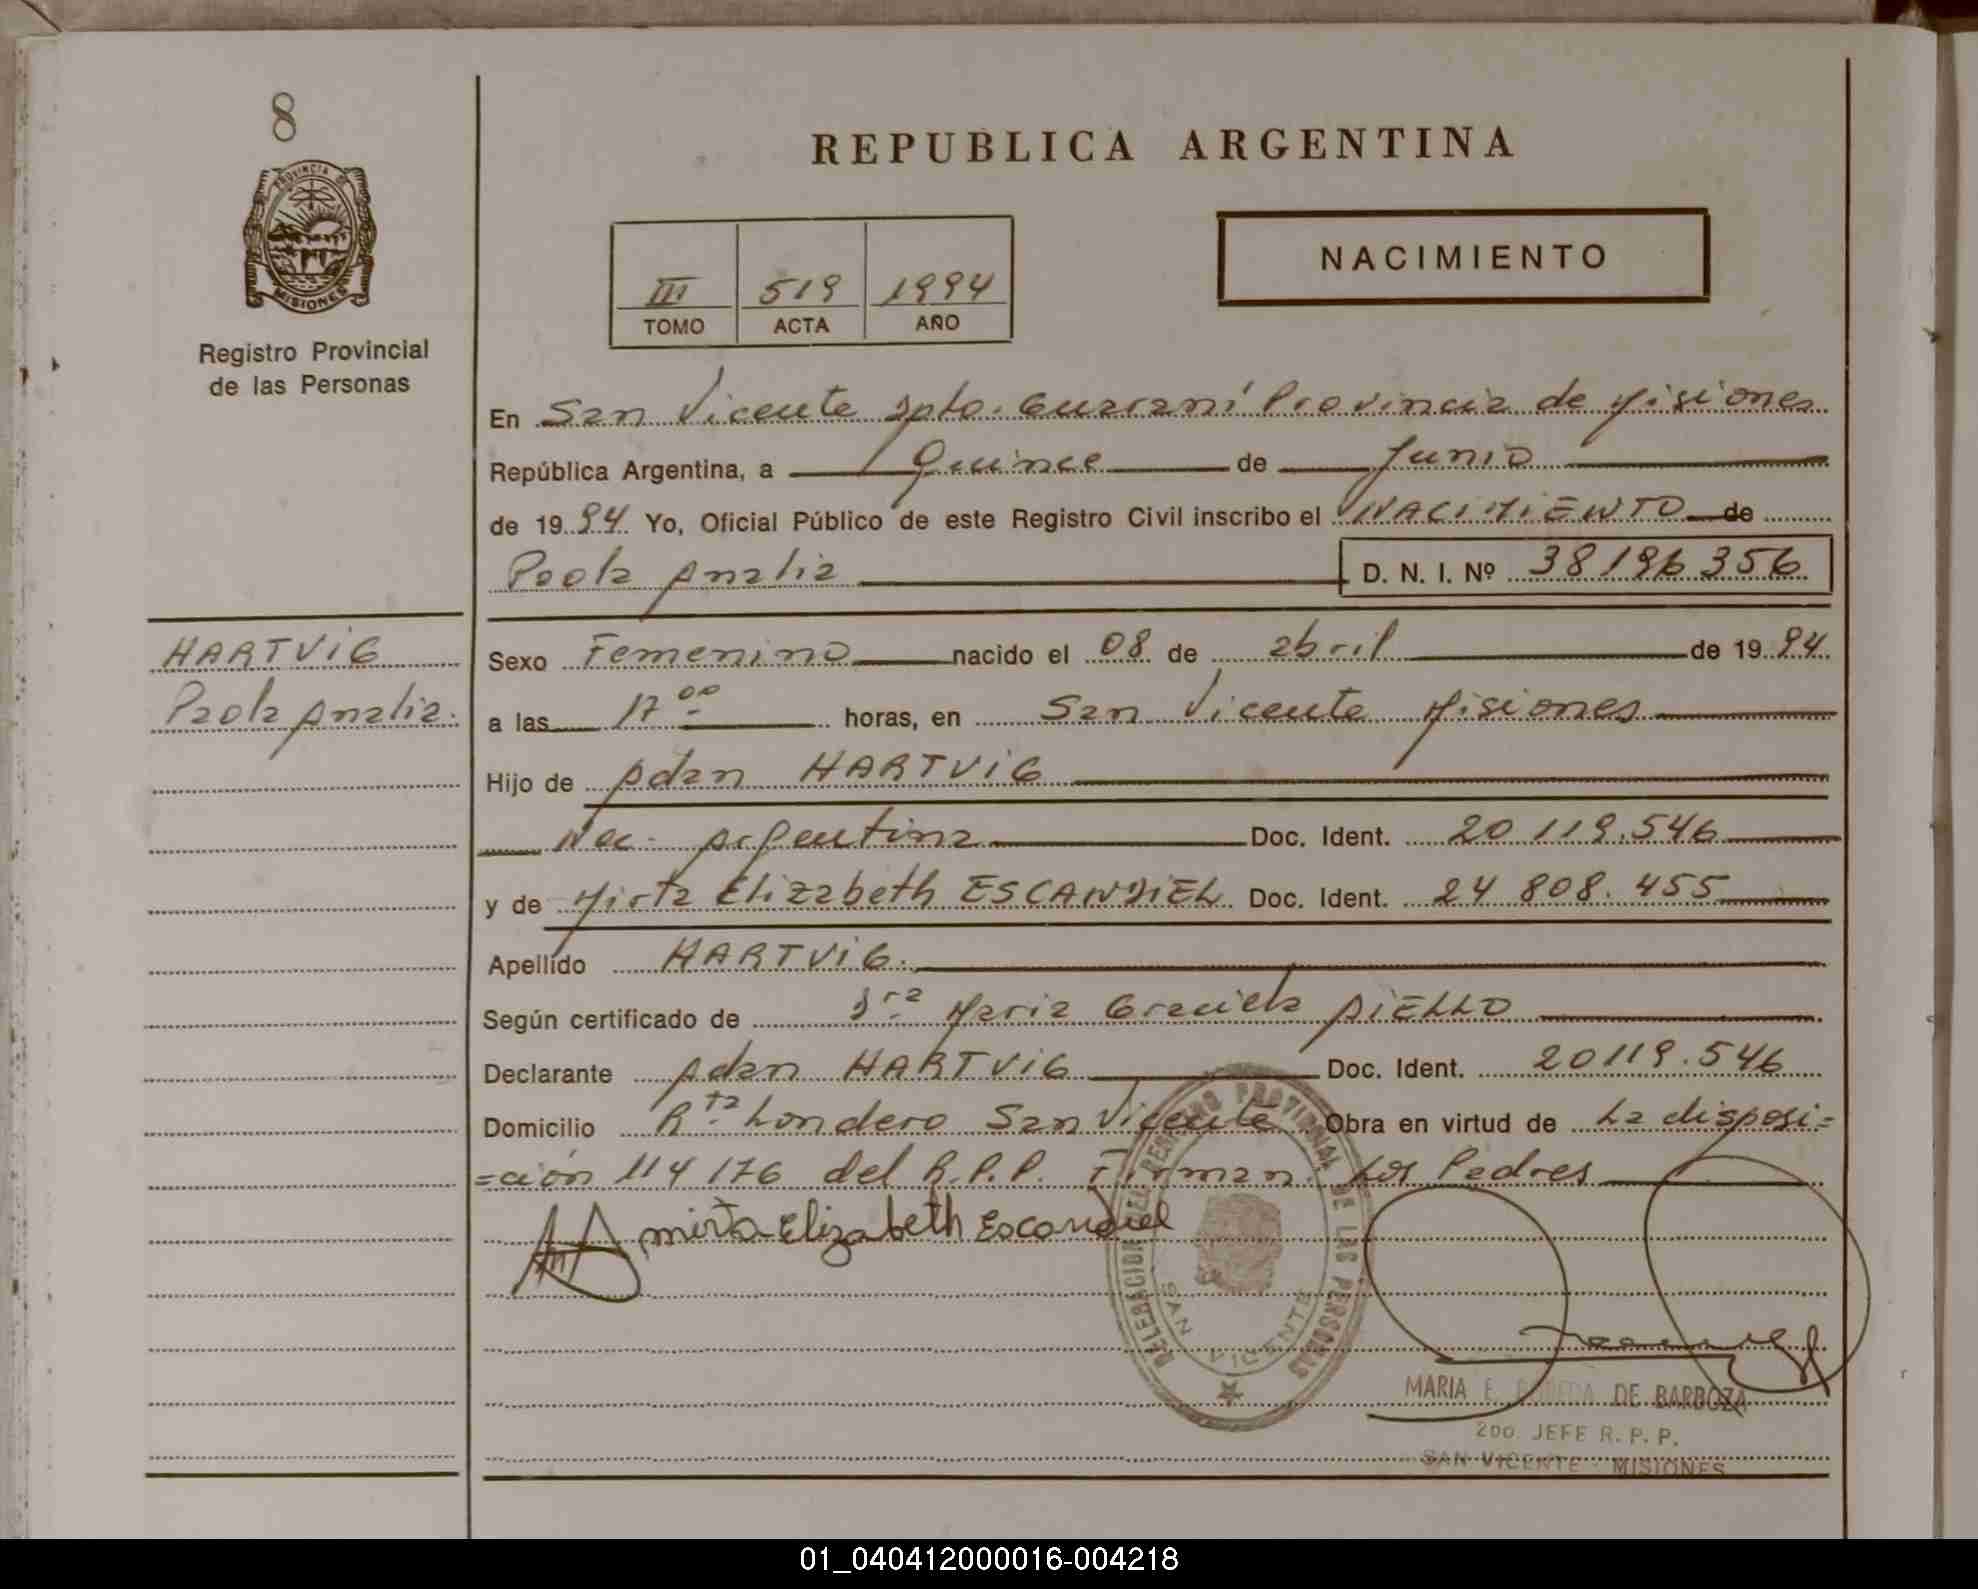 8
PROVINCIA DE
MISIONES
Registro Provincial
de las Personas
REPUBLICA ARGENTINA
NACIMIENTO
III 519 1994
TOMO ACTA AÑO
En San Vicente Dpto. Guaraní Provincia de Misiones
República Argentina, a Quince de Junio
de 1994 Yo, Oficial Público de este Registro Civil inscribo el NACIMIENTO de
Paola Analia D. N. I. Nº 38196356
HARTVIG
Paola Analia.
Sexo Femenino nacido el 08 de abril de 1994
a las 17 00 horas, en San Vicente Misiones
Hijo de Adan HARTVIG
Nac. Argentina Doc. Ident. 20 119.546
y de Mirta Elizabeth ESCANDIEL Doc. Ident. 24 808.455
Apellido HARTVIG.
Según certificado de Dra Maria Graciela AIELLO
Declarante Adan HARTVIG Doc. Ident. 20119.546
Domicilio Rta Londero San Vicente Obra en virtud de La disposi=
=ción 114 176 del R.P.P. Firman Los Padres
Mirta Elizabeth Escandiel
DELEGACION DEL REGISTRO PROVINCIAL DE LAS PERSONAS
SAN VICENTE
MARIA E. DE BARBOZA
2do JEFE R. P. P.
SAN VICENTE - MISIONES
01_040412000016-004218